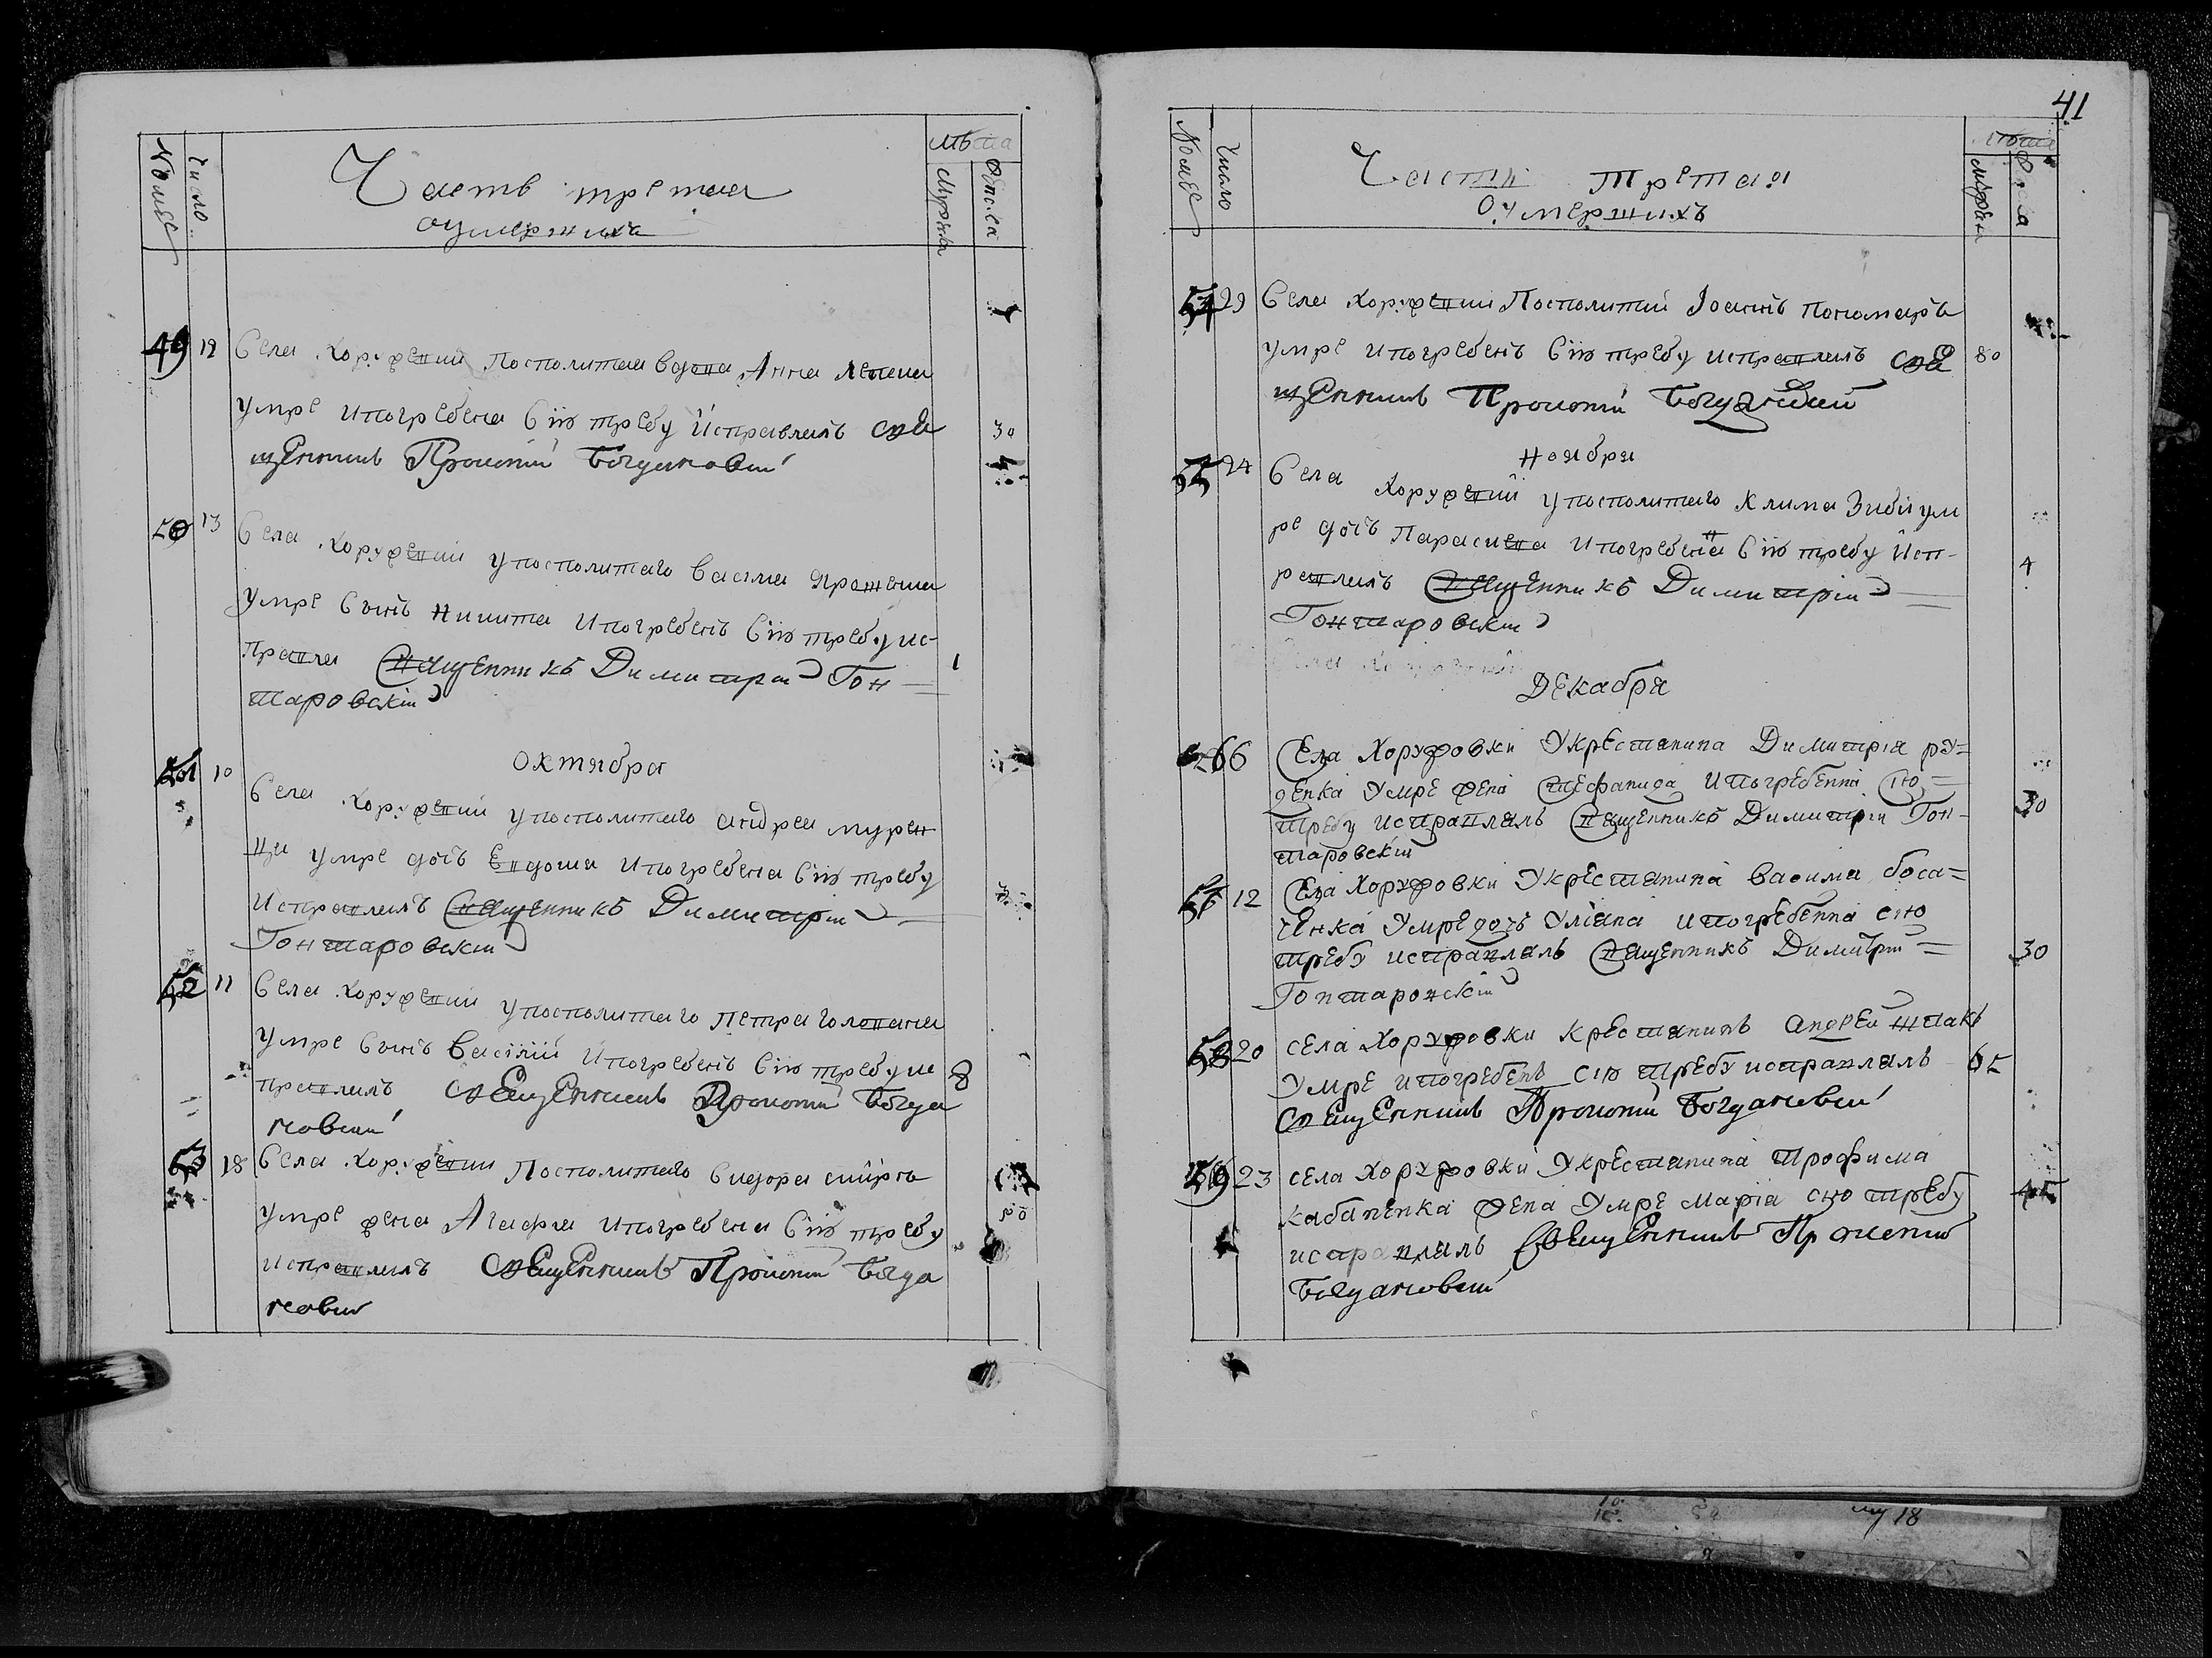 41
Номеръ
Число
Часть третая
оумершихъ
лѣта
Мужеска
Женска
49 12 Села Хоружевки Посполитая вдова Анна
умре ипогребена Сию требу Исправлялъ свя
щенникъ Прокопий Богдановский 30
50 13 Села Хоружевки упосполитаго Василя Ярошенка
умре Сынъ Никита Ипогребенъ Сию требу ис-
правля Священникъ Димитрий Гон= 1
таровский
октября
51 10 Села Хоружевки упосполитаго андрея мурен
ца умре дочь Евдокия Ипогребена Сию требу
Исправлялъ Священникъ Димитрий
Гонтаровский
52 11 Села Хоружевки упосполитаго Петра Голована
умре Сынъ Василий Ипогребенъ Сию требу ис
правлялъ Священникъ Прокопий Богда 8
новский
53 18 Села Хоружевки Посполитаго Сидора
умре жена Агафия Ипогребена Сию требу 50
исправлялъ Священникъ Прокопий Богда
новский
Номеръ
Число
Часть Третая
Оумершихъ
лѣта
мужеска
54 29 Села Хоружевки Посполитий Иоаннъ Пономарь
умре ипогребенъ Сию требу исправлялъ свя 80
щенникъ Прокопий Богданский
Ноября
55 24 Села Хоружевкий упосполитаго Клима Зиби ум
ре дочь Параскева ипогребена Сию требу Исп-
равлялъ Священникъ Димитрий 4
Гонтаровский
Декабря
56 6 Села Хоружовки Укрестянина Димитрия ру=
денка Умре жена Стефанида Ипогребенна Сію=
требу исправлялъ Священникъ Димитрий Гон- 30
таровский
57 12 Села Хоружовки Укрестянина василя боса=
ченка Умре дочь Улiана ипогребенна сию
требу исправлялъ Священникъ Димитрий= 30
Гонтаровский
58 20 села Хоружовки крестянинъ андрей шпакъ
Умре ипогребенъ сию требу исправлялъ 65
Священникъ Прокопий Богдановский
59 23 села Хоружовки Укрестянина трофима
кабаненка жена Умре Мария сию требу 45
исправлялъ Священникъ Прокопий
Богдановский